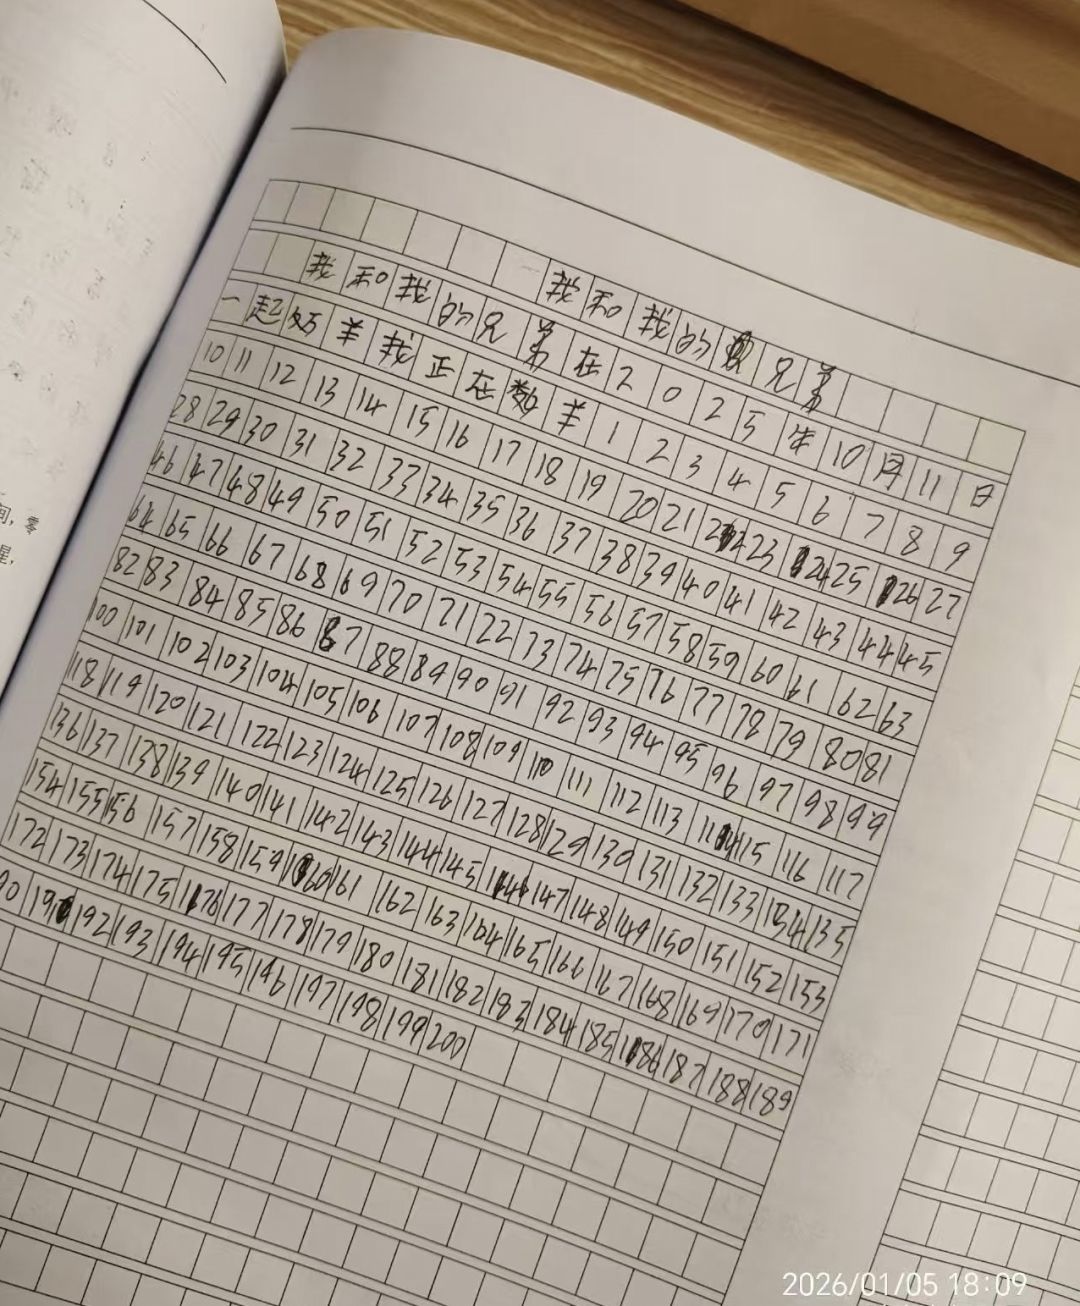 我和我的兄弟
我和我的兄弟在2025年10月11日
一起好羊我正在数羊123456789
10 11 12 13 14 15 16 17 18 19 20 21 22 23 24 25 26 27
28 29 30 31 32 33 34 35 36 37 38 39 40 41 42 43 44 45
46 47 48 49 50 51 52 53 54 55 56 57 58 59 60 61 62 63
64 65 66 67 68 69 70 71 22 73 74 75 76 77 78 79 80 81
82 83 84 85 86 87 88 89 90 91 92 93 94 95 96 97 98 99
100 101 102 103 104 105 106 107 108 109 110 111 112 113 114 115 116 117
118 119 120 121 122 123 124 125 126 127 128 129 130 131 132 133 134 135
136 137 138 139 140 141 142 143 144 145 146 147 148 149 150 151 152 153
154 155 156 157 158 159 160 161 162 163 164 165 166 167 168 169 170 171
172 173 174 175 176 177 178 179 180 181 182 183 184 185 186 187 188 189
90 191 192 193 194 195 196 197 198 199 200
间，零
星，
2026/01/05 18:09